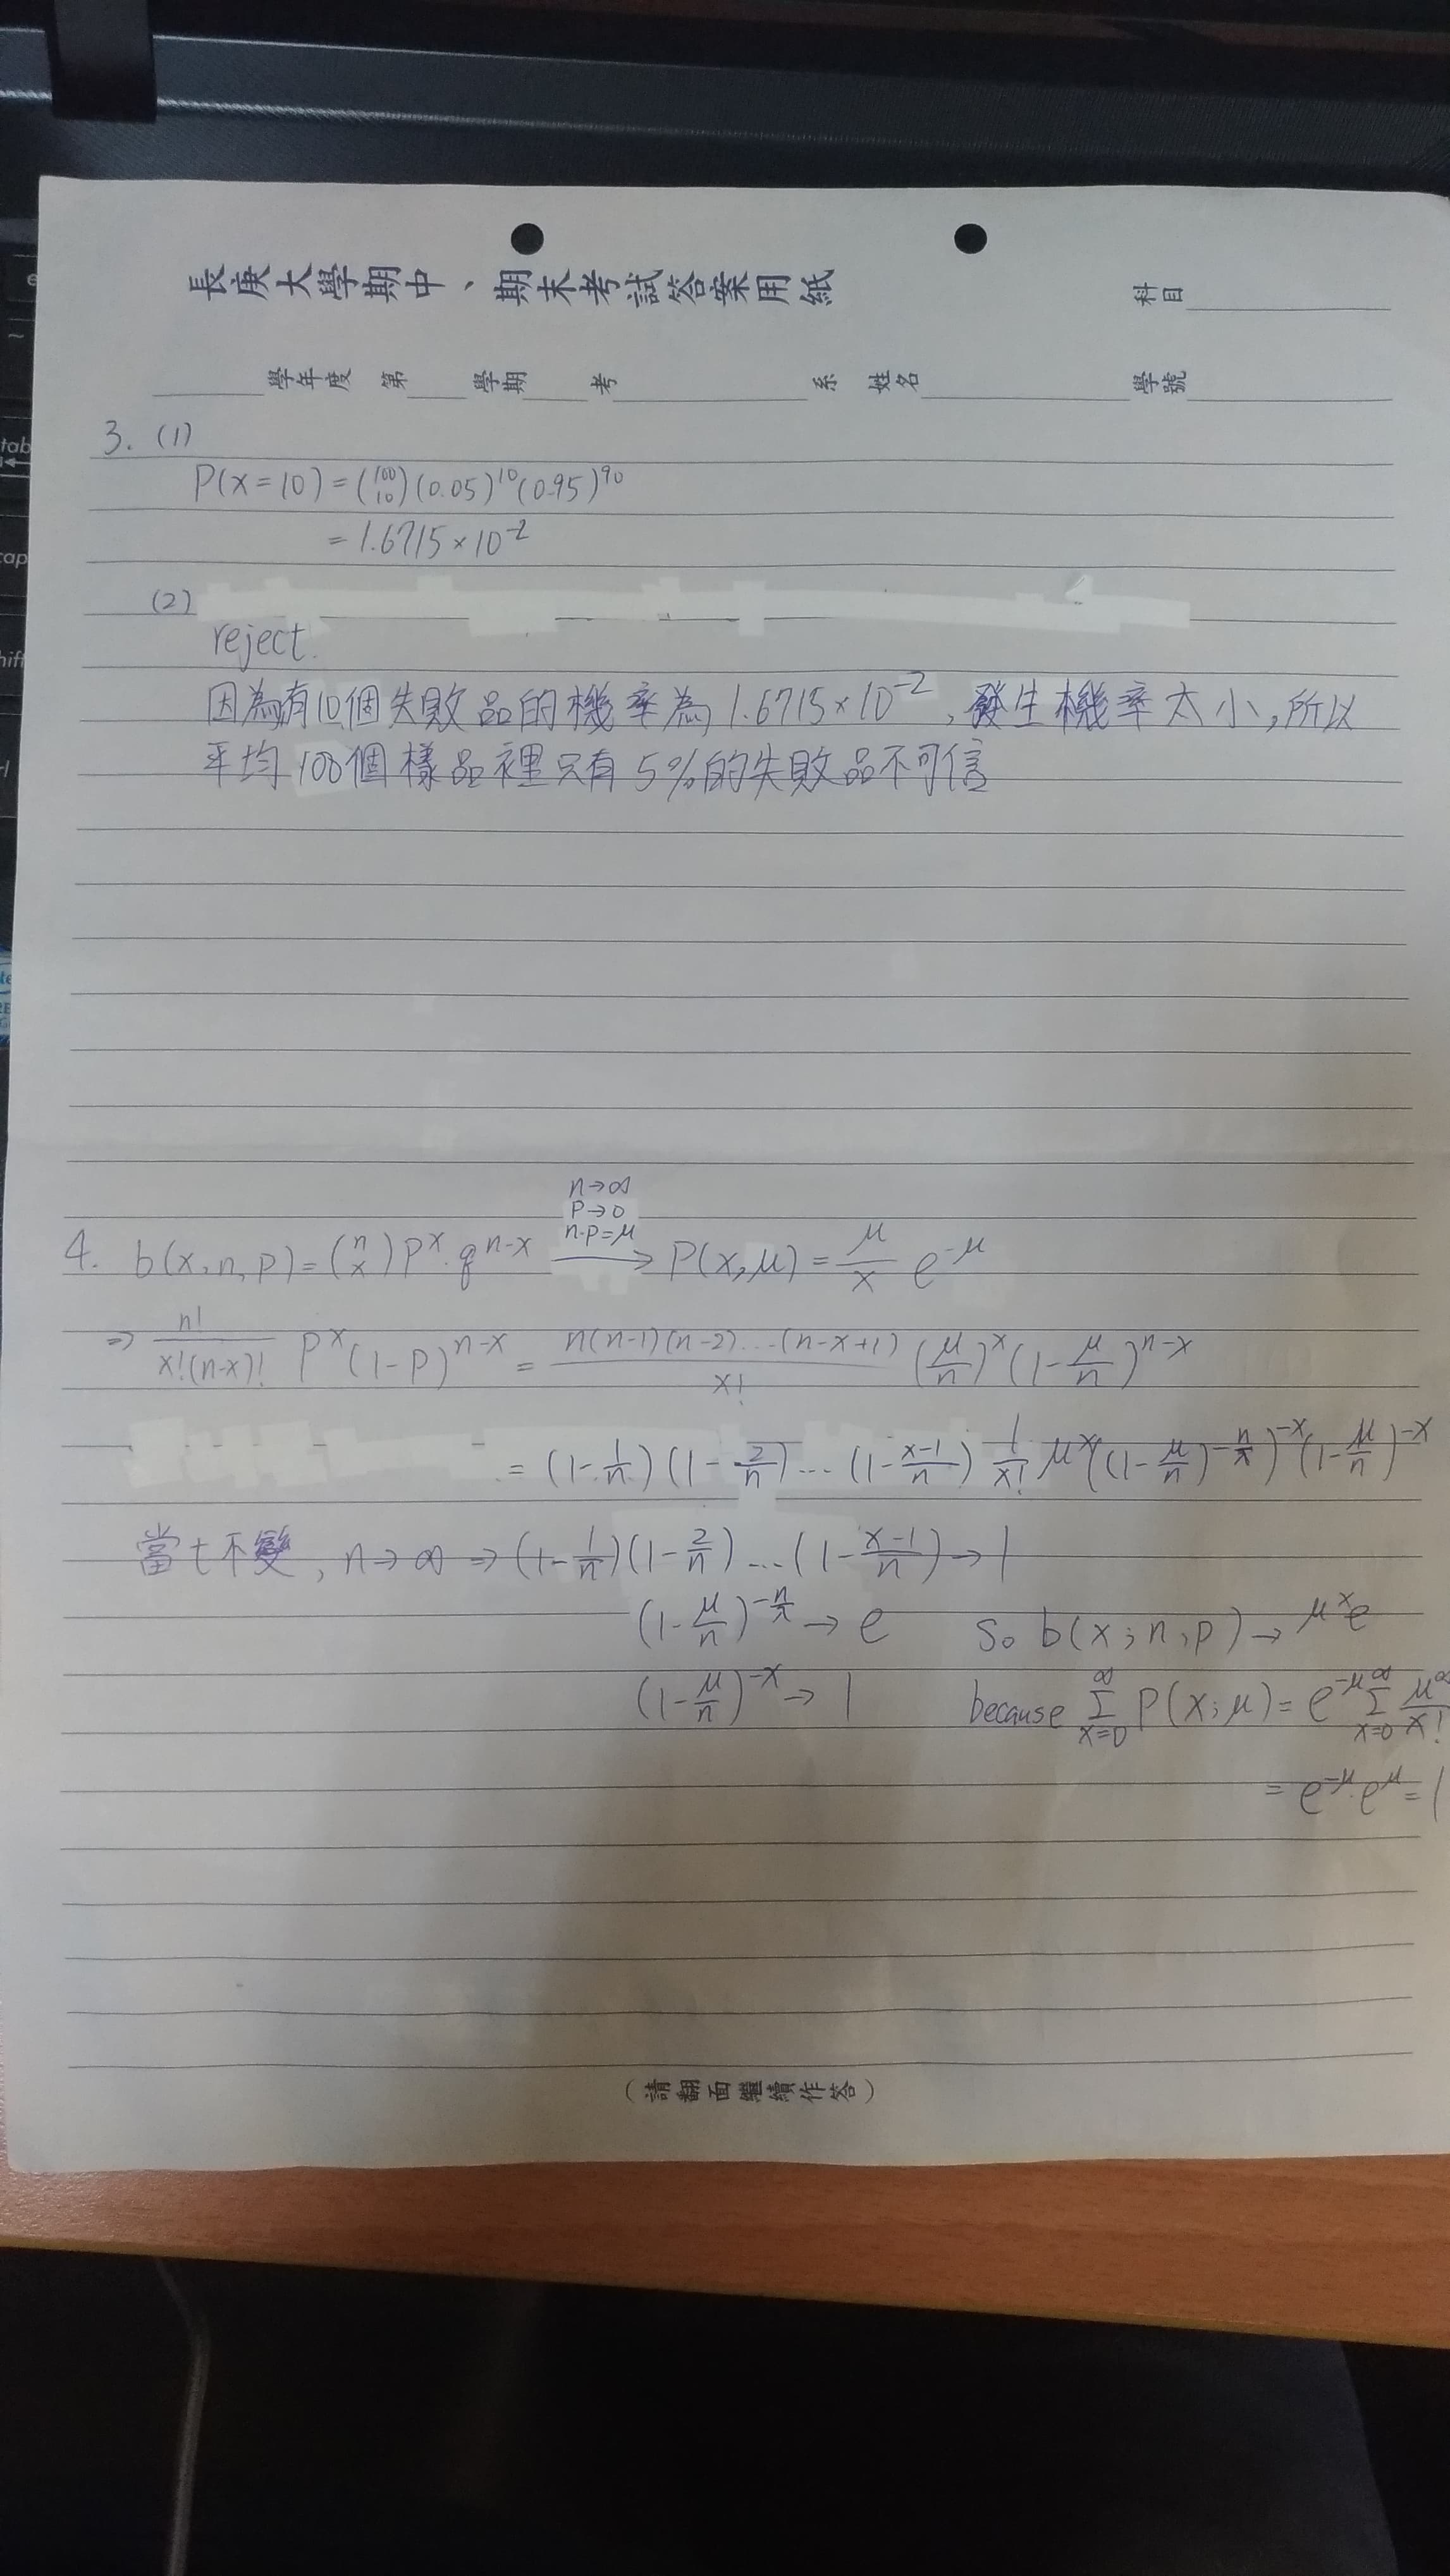 長庚大學期中、期末考試答案用紙 科目
學年度 第 學期 考 系 姓名 學號
3. (1)
P(x=10) = (100 10)(0.05)^10(0.95)^90
= 1.6715×10^-2
(2)
reject.
因為有10個失敗品的機率為1.6715×10^-2,發生機率太小,所以
平均100個樣品裡只有5%的失敗品不可信
n→∞
P→0
n·p=μ
4. b(x,n,p)=(n x)p^x·q^n-x → P(x,μ)= μ/x e^-μ
⇒ n!/x!(n-x)! p^x(1-p)^n-x = n(n-1)(n-2)...(n-x+1)/x! (μ/n)^x(1-μ/n)^n-x
= (1-1/n)(1-2/n)...(1-x-1/n) 1/x! μ^x((1-μ/n)^-n/x)^-x(1-μ/n)^-x
當t不變, n→∞ ⇒ (1-1/n)(1-2/n)...(1-x-1/n)→1
(1-μ/n)^-n/x → e So b(x;n,p)→ μ^x e
(1-μ/n)^-x → 1 because ∞Σx=0 P(x;μ)= e^-μ ∞Σx=0 μ^∞/x!
= e^-μ·e^μ=1
(請翻面繼續作答)